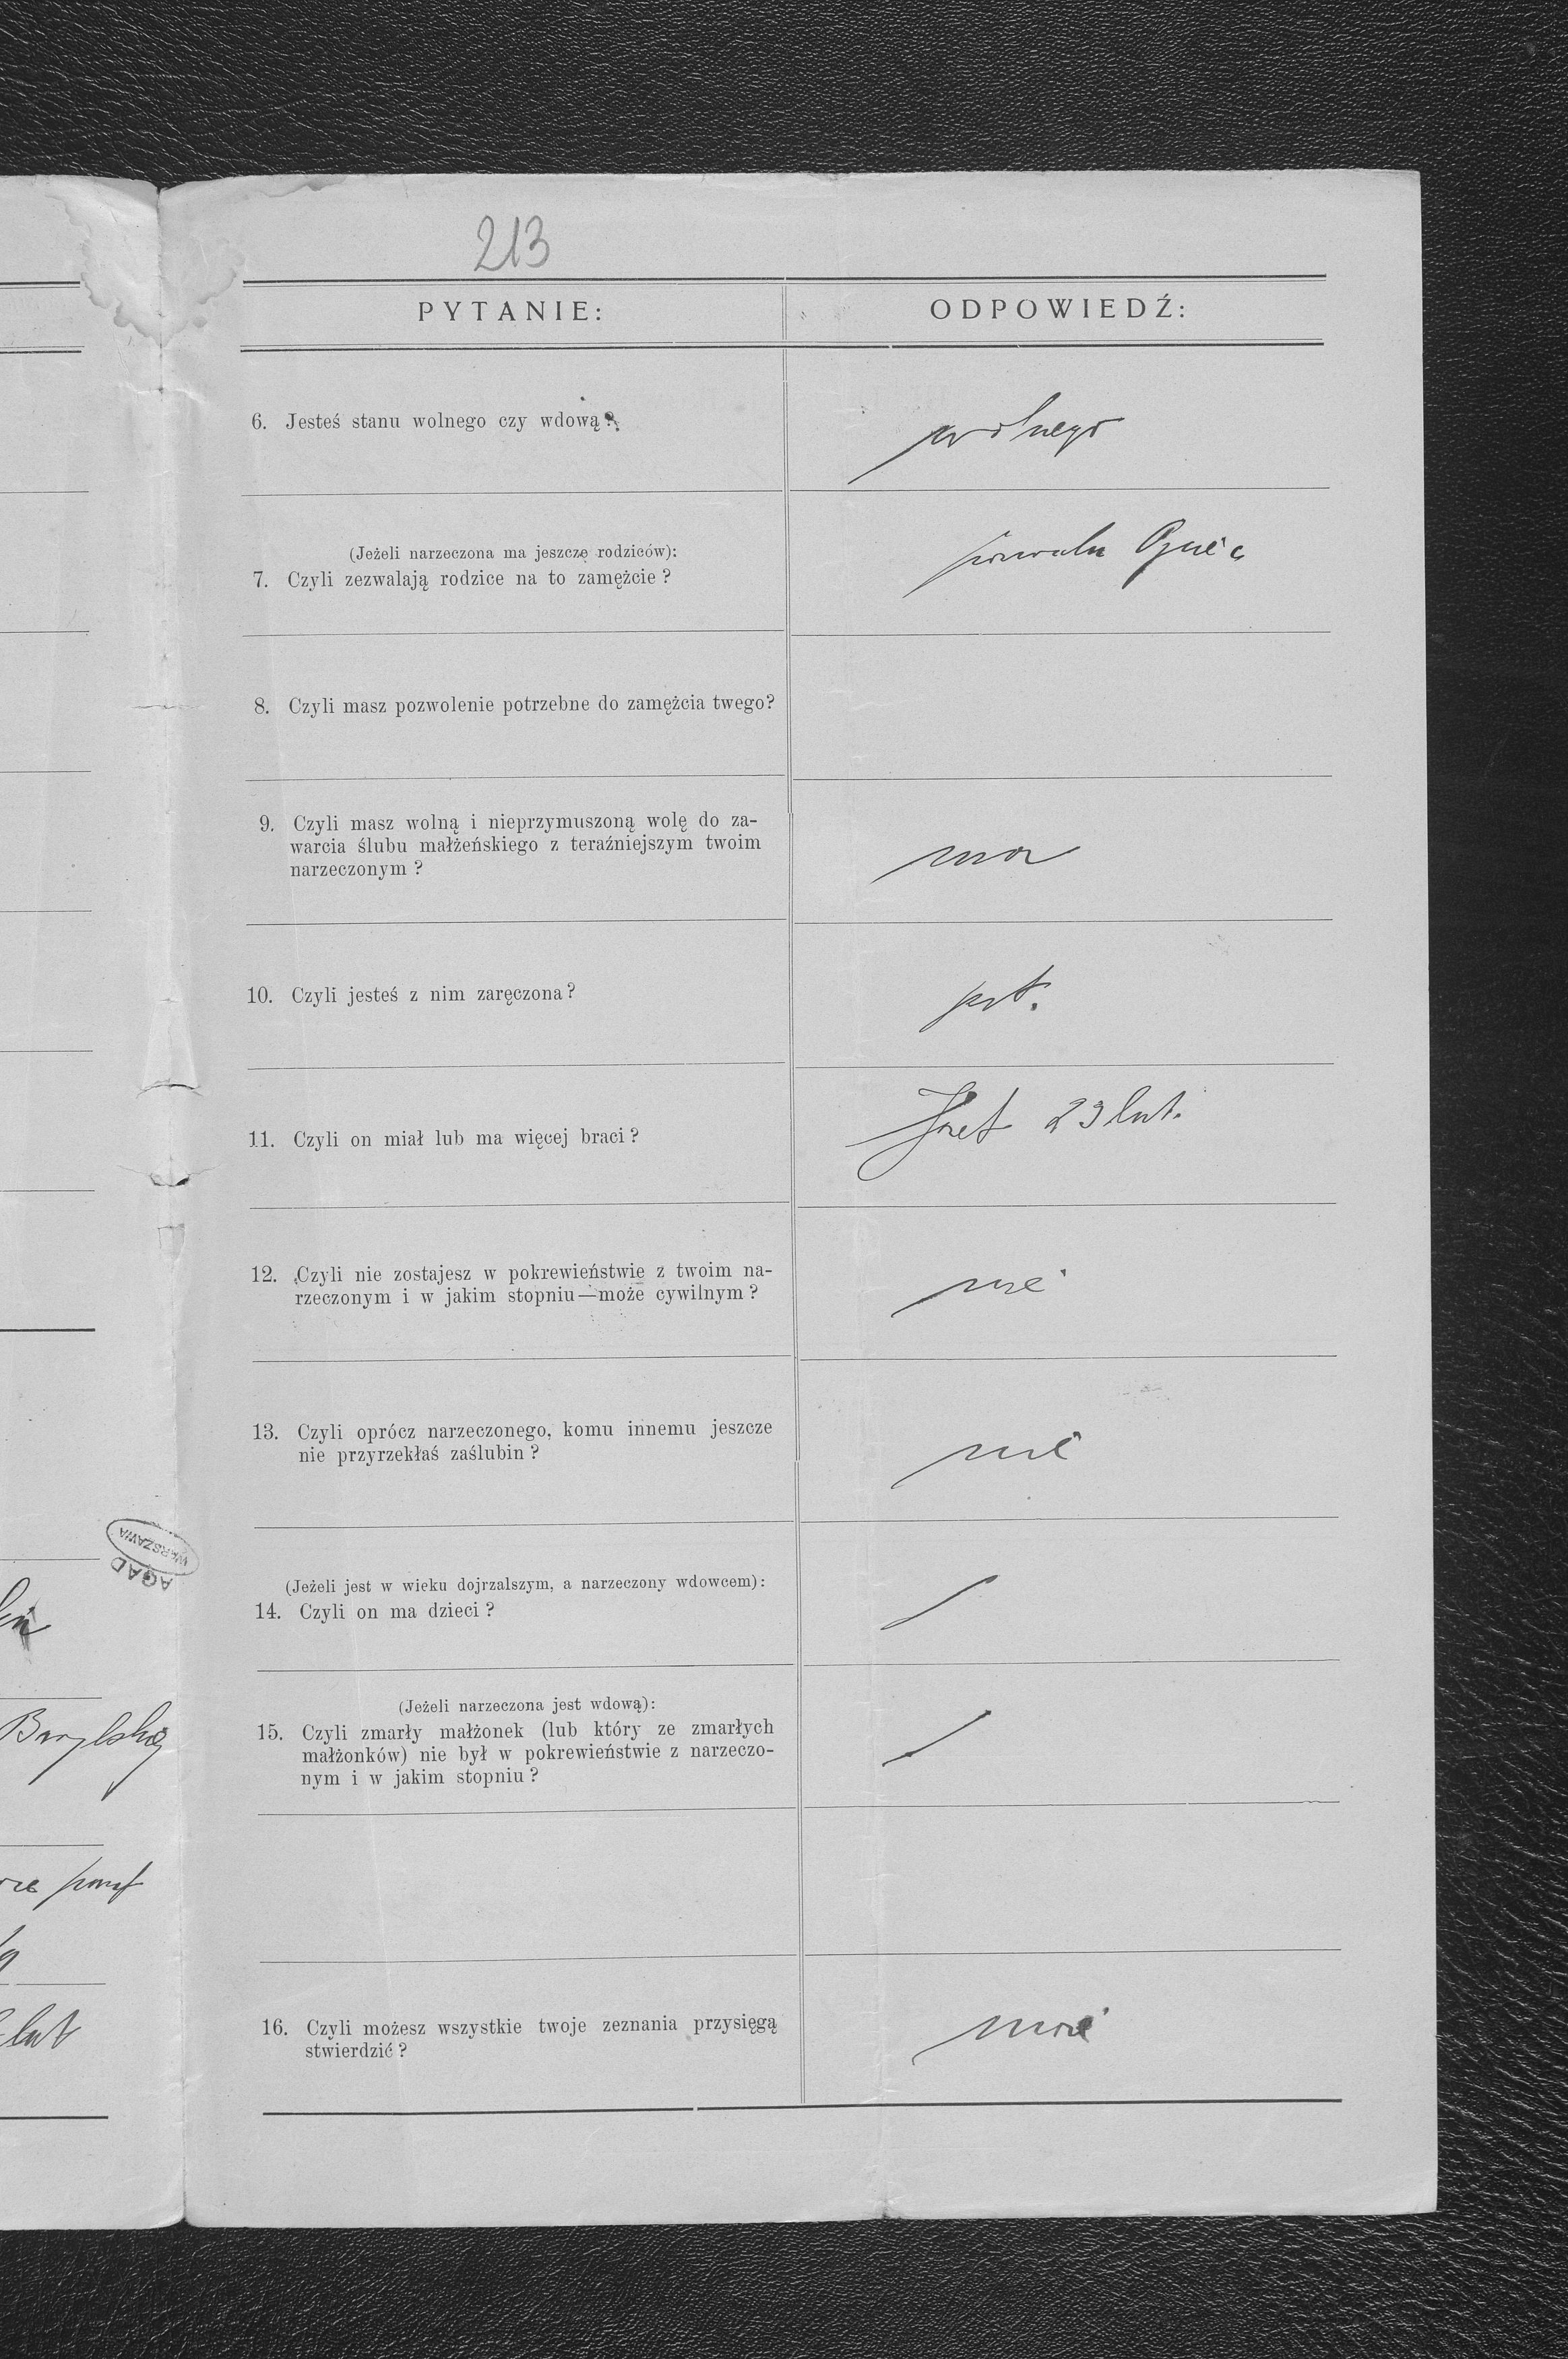 213
PYTANIE:
ODPOWIEDŹ:
6. Jesteś stanu wolnego czy wdową?
wolnego
(Jeżeli narzeczona ma jeszcze rodziców):
7. Czyli zezwalają rodzice na to zamężcie?
8. Czyli masz pozwolenie potrzebne do zamężcia twego?
9. Czyli masz wolną i nieprzymuszoną wolę do za-
warcia ślubu małżeńskiego z teraźniejszym twoim
narzeczonym?
ma
10. Czyli jesteś z nim zaręczona?
jest.
11. Czyli on miał lub ma więcej braci?
Józef 23 lat.
12. Czyli nie zostajesz w pokrewieństwie z twoim na-
rzeczonym i w jakim stopniu—może cywilnym?
nie
13. Czyli oprócz narzeczonego, komu innemu jeszcze
nie przyrzekłaś zaślubin?
nie
(Jeżeli jest w wieku dojrzalszym, a narzeczony wdowcem):
14. Czyli on ma dzieci?
(Jeżeli narzeczona jest wdową):
15. Czyli zmarły małżonek (lub który ze zmarłych
małżonków) nie był w pokrewieństwie z narzeczo-
nym i w jakim stopniu?
16. Czyli możesz wszystkie twoje zeznania przysięgą
stwierdzić?
może
AGAD
WARSZAWA
lat